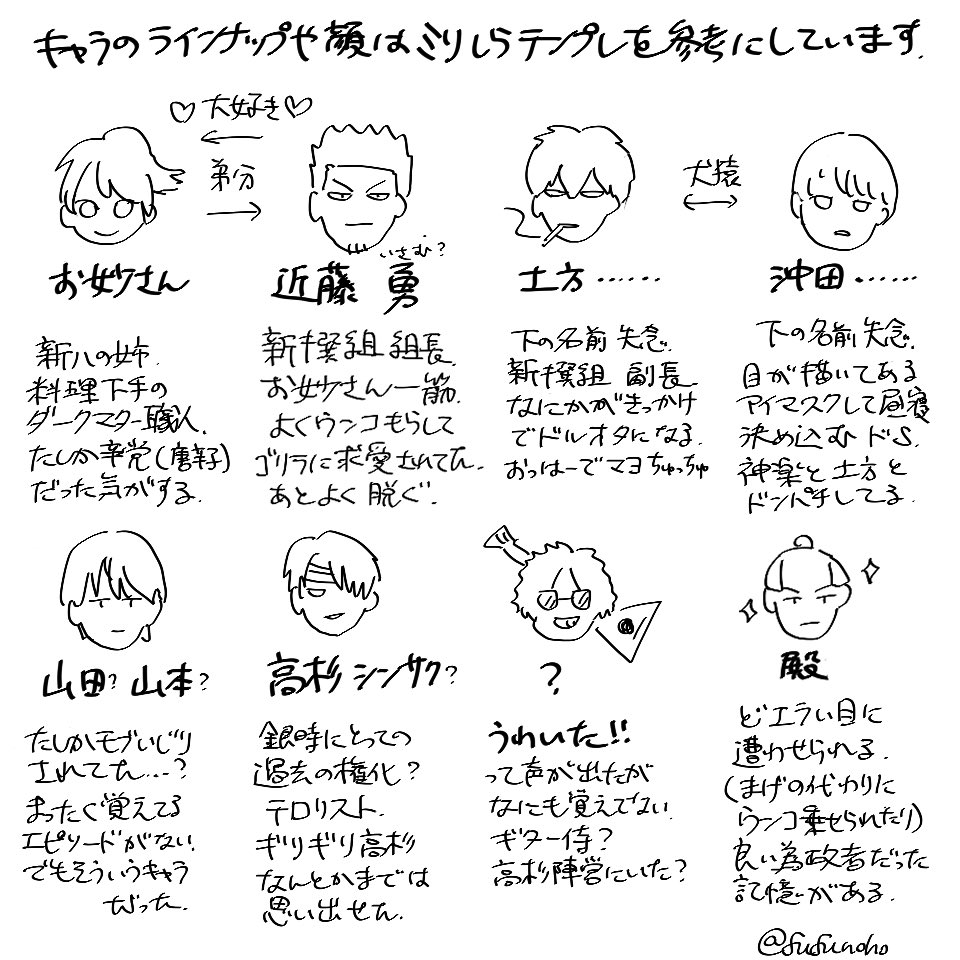 キャラのラインナップや顔は、ミリしらテンプレを参考にしています.
♡大好き♡
弟分
お妙さん
新八の姉.
料理下手の
ダークマター職人.
たしか辛党(唐辛子)
だった気がする.
いさむ?
近藤 勇
新撰組 組長.
お妙さん一筋.
よくウンコもらして
ゴリラに求愛されてた.
あとよく脱ぐ.
犬猿
土方……
下の名前 失念.
新撰組 副長.
なにかがきっかけ
でドルオタになる.
おっはーでマヨちゅっちゅ
沖田……
下の名前 失念.
目が描いてある
アイマスクして昼寝
決め込むドS.
神楽と土方と
ドンパチしてる.
山田?山本?
たしかモブいじり
されてた…?
まったく覚えてる
エピソードがない.
でもそういうキャラ
だった.
高杉シンサク?
銀時にとっての
過去の権化?
テロリスト.
ギリギリ高杉
なんとかまでは
思い出せた.
?
うわいた!!
って声が出たが
なにも覚えてない
ギター侍?
高杉陣営にいた?
殿
どエラい目に
遭わせられる.
(まげの代わりに
ウンコ乗せられたり)
良い為政者だった
記憶がある.
@fufunoho